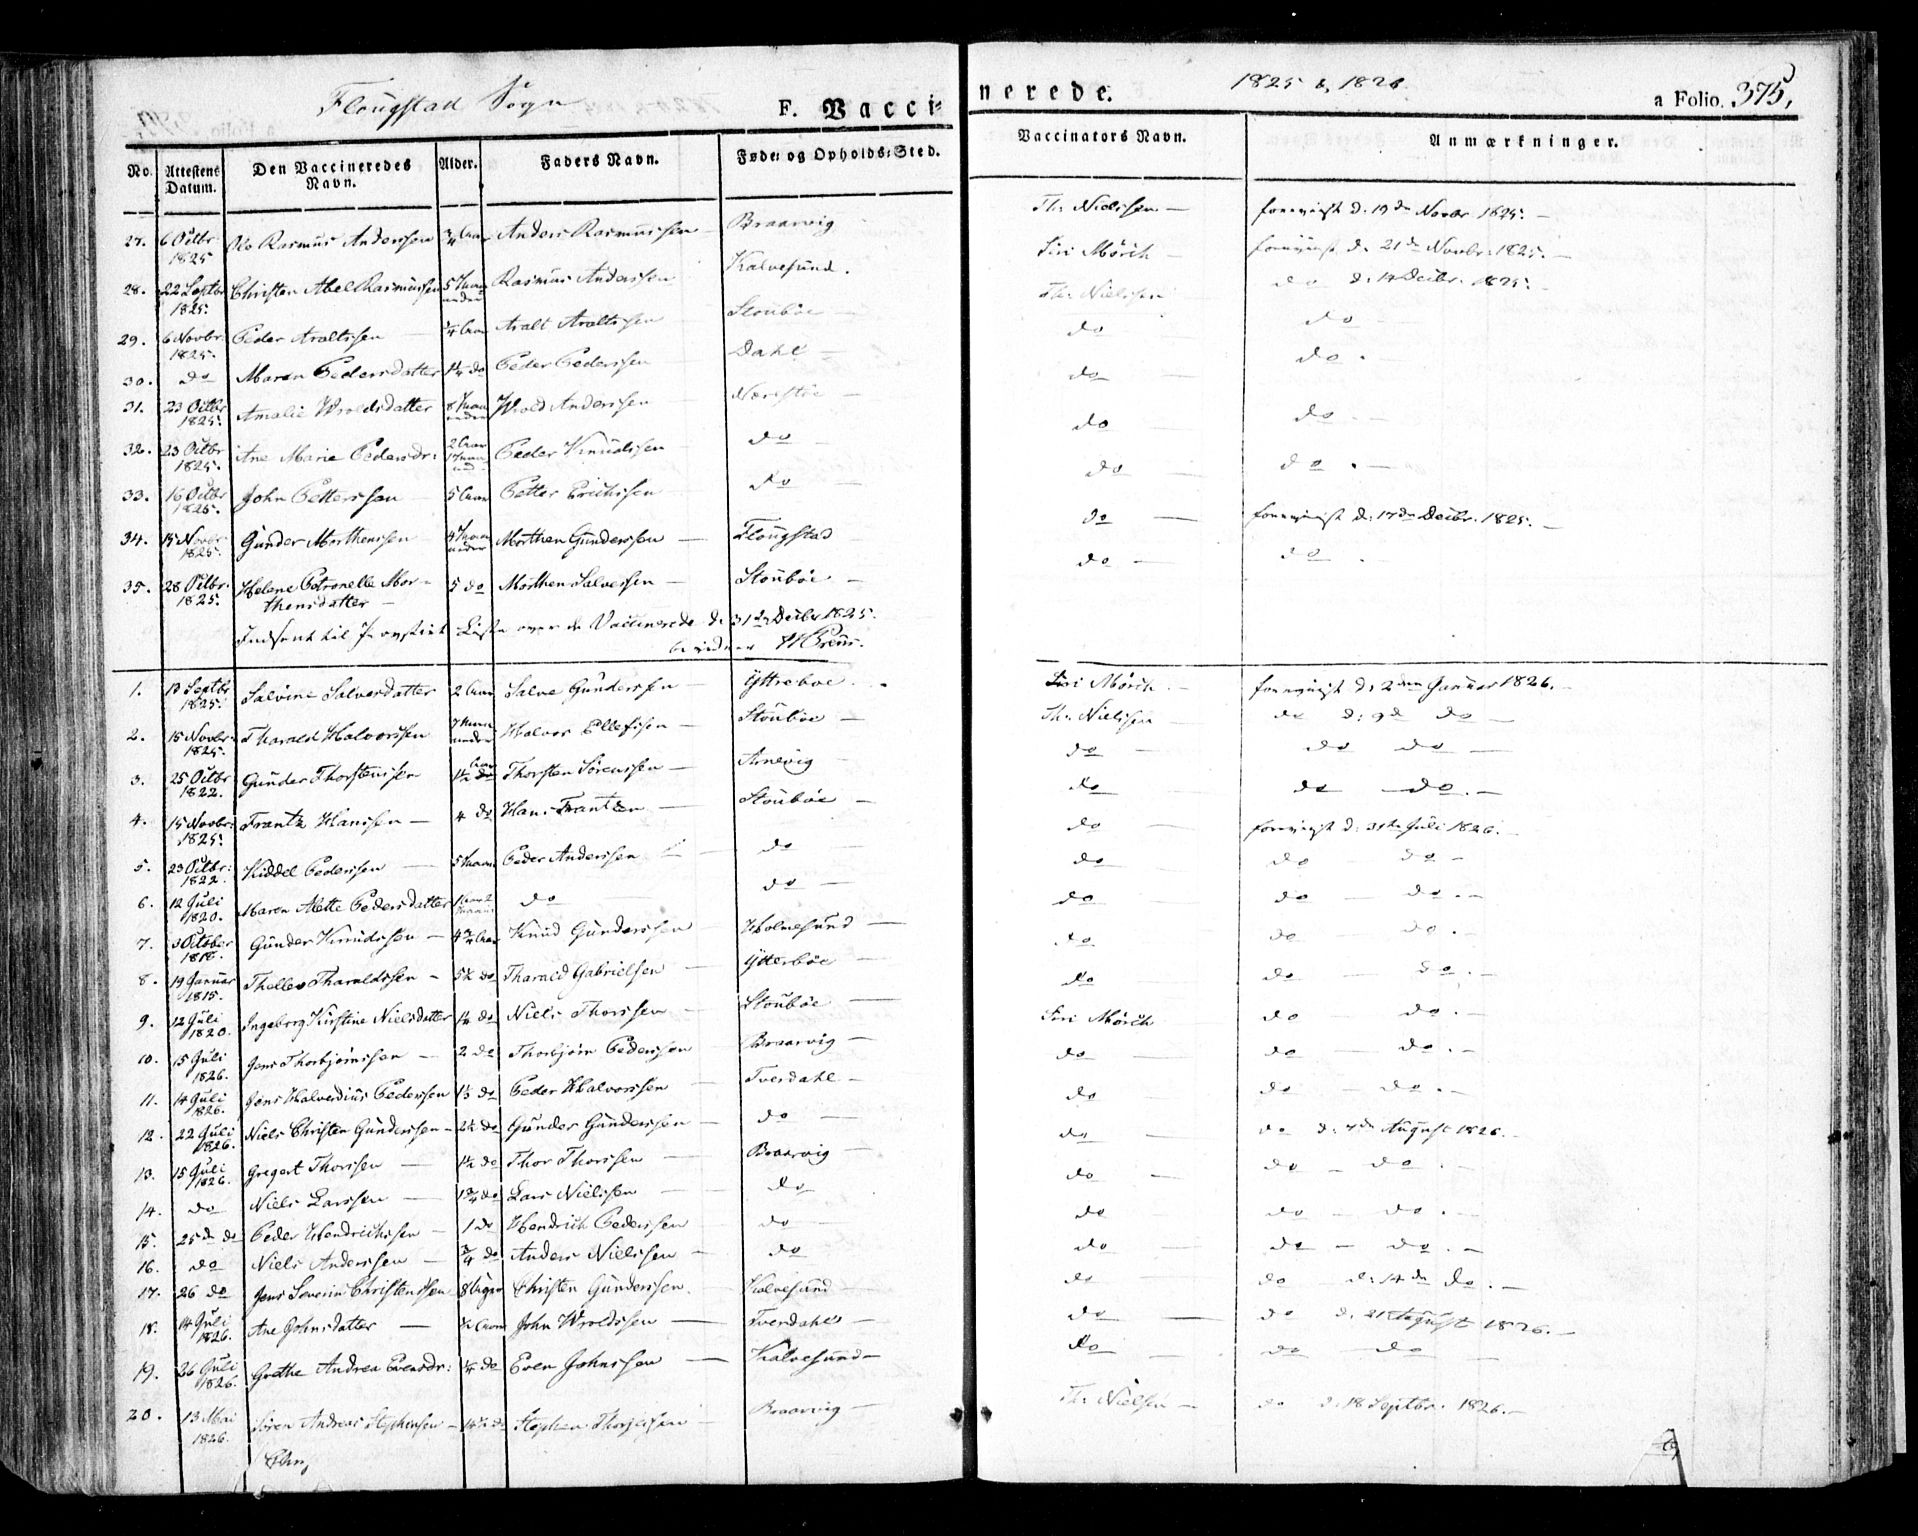 Flougstad Sogn F. Vaccinerede. 1825 & 1826 a Folio. 375,
No. Attestens Datum. Den Vaccineredes Navn. Alder. Faders Navn. Føde: og Opholds: Sted. Vaccinators Navn. Anmærkninger.
27. 6 Octbr 1825 Ole Rasmus Anderssen 3/4 Aar Anders Rasmussen Braarvig Th: Nielssen d: 19de Novbr 1825.
28. 22 Septbr 1825. Christen Abel Rasmussen 5 Rasmus Anderssen Kalvesund. Siri Mörch d: 21de Novbr: 1825.
29. 6 Novbr: 1825. Peder Araltssen 1/4 Aar Aralt Araltssen Stoubøe Th: Nielssen do
30. do Maren Pedersdatter 1 1/4 do Peder Pederssen Dahl do do
31. 23 Octbr 1825. Amalie Wroldsdatter 8 Wrold Anderssen do do
32. 23 Octbr 1825. Ane Marie Pedersdr: 2 Aar Peder Knudssen do do do
33. 16 Octbr 1825. John Petterssen 5 Aar Petter Erichssen do do do
34. 15 Novbr 1825. Gunder Morthenssen 4 Morthen Gunderssen Flougstad do d: 17de Decbr. 1825.
35. 28 Octbr. 1825. Helene Petronelle Morthensdatter 5 do Morthen Salvessen Stoubøe do do
Indsent til Liste over de Vaccinerede d: 31te Decbr 1825.
1. 13 Septbr 1825. Salvine Salvesdatter 2 Aar Salve Gunderssen Yttreboe Siri Mörch d: 2den Januar 1826.
2. 15 Novbr: 1825. Tharald Halvorssen 7 Halvor Ellefssen Stoubøe Th: Nielssen do d: 9de do
3. 25 Octbr 1822. Gunder Thorstenssen 1 1/2 Aar Thorsten Sörenssen Arnevig do do do
4. 15 Novbr: 1825. Frantz Hanssen 4 do Hans Frantzen Stoubøe do do do
5. 23 Octbr: 1822. Kiddel Pederssen 5 Peder Anderssen do do d: 31te Juli 1826.
6. 12 Juli 1820. Maren Mette Pedersdatter do do do do do
7. 3 October 1818. Gunder Knudssen 4 3/4 Aar Knud Gunderssen Holmesund do do do
8. 19 Januar 1815. Thellev Tharaldssen 5 1/2 do Tharald Gabrielsen Ytterbøe do do do
9. 12 Juli 1820. Ingeborg Kirstine Nielsdatter 1 1/4 do Niels Thorssen Stoubøe do do do
10. 15 Juli 1826. Jens Thorbjörnssen 2 do Thorbjörn Pederssen Braarvig Siri Mörch do do
11. 14 Juli 1826. Jens Halverdius Pederssen 1 1/2 do Peder Halvorssen Tverdahl do do do
12. 22 Juli 1826. Niels Christen Gunderssen 2 1/2 do Gunder Gunderssen do do do do
13. 15 Juli 1826. Gregert Thorssen 1 1/2 do Thor Thorssen Braarvig do do d: 7de August 1826.
14. do Niels Larssen 1 3/4 do Lars Nielssen do do do do
15. 25de do Peder Hendrichssen 1 do Hendrich Pederssen do do do do
16. do Niels Anderssen 3/4 do Anders Nielssen do do do do
17. 26 do Jens Severin Christenssen 8 Uger Christen Gunderssen. Kalvesund do do d: 14de do
18. 14 Juli 1826. Ane Johnsdatter 1/2 Aar John Wroldssen Tverdahl do do d: 21 August 1826.
19. 26 Juli 1826. Grethe Andrea Evensdr: 1/4 do Even Johnssen Kalvesund do do do
20. 13 Mai 1826. Sören Andreas Stephensen 14 1/2 do Stephen Braarvig Th: Nielsen do d: 18 Septbr. 1826.